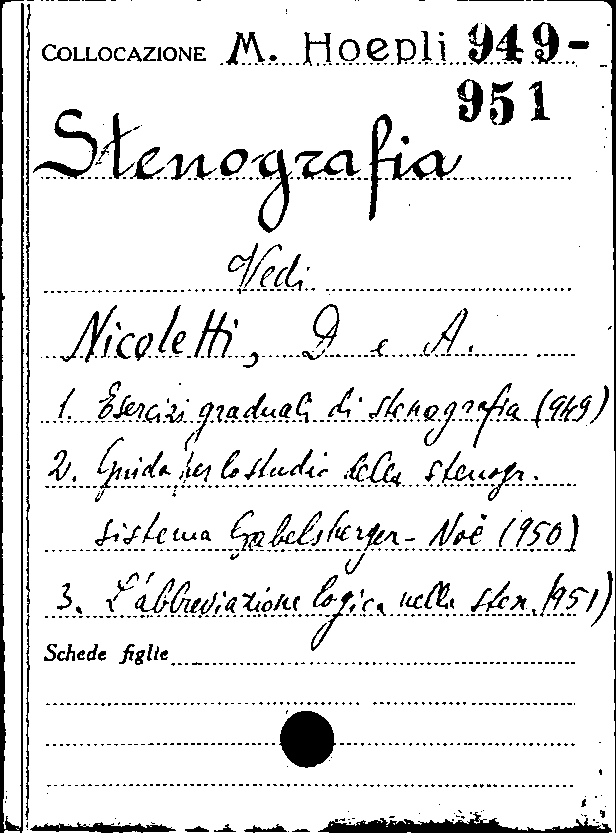 COLLOCAZIONE M. Hoepli 949-
951
Stenografia
Vedi
Nicoletti, D e A.
1. Esercizi graduali di stenografia (949)
2. Guida per lo studio della stenogr.
sistema Gabelsberger - Noë (950)
3. L'abbreviazione logica nella sten. (951)
Schede figlie